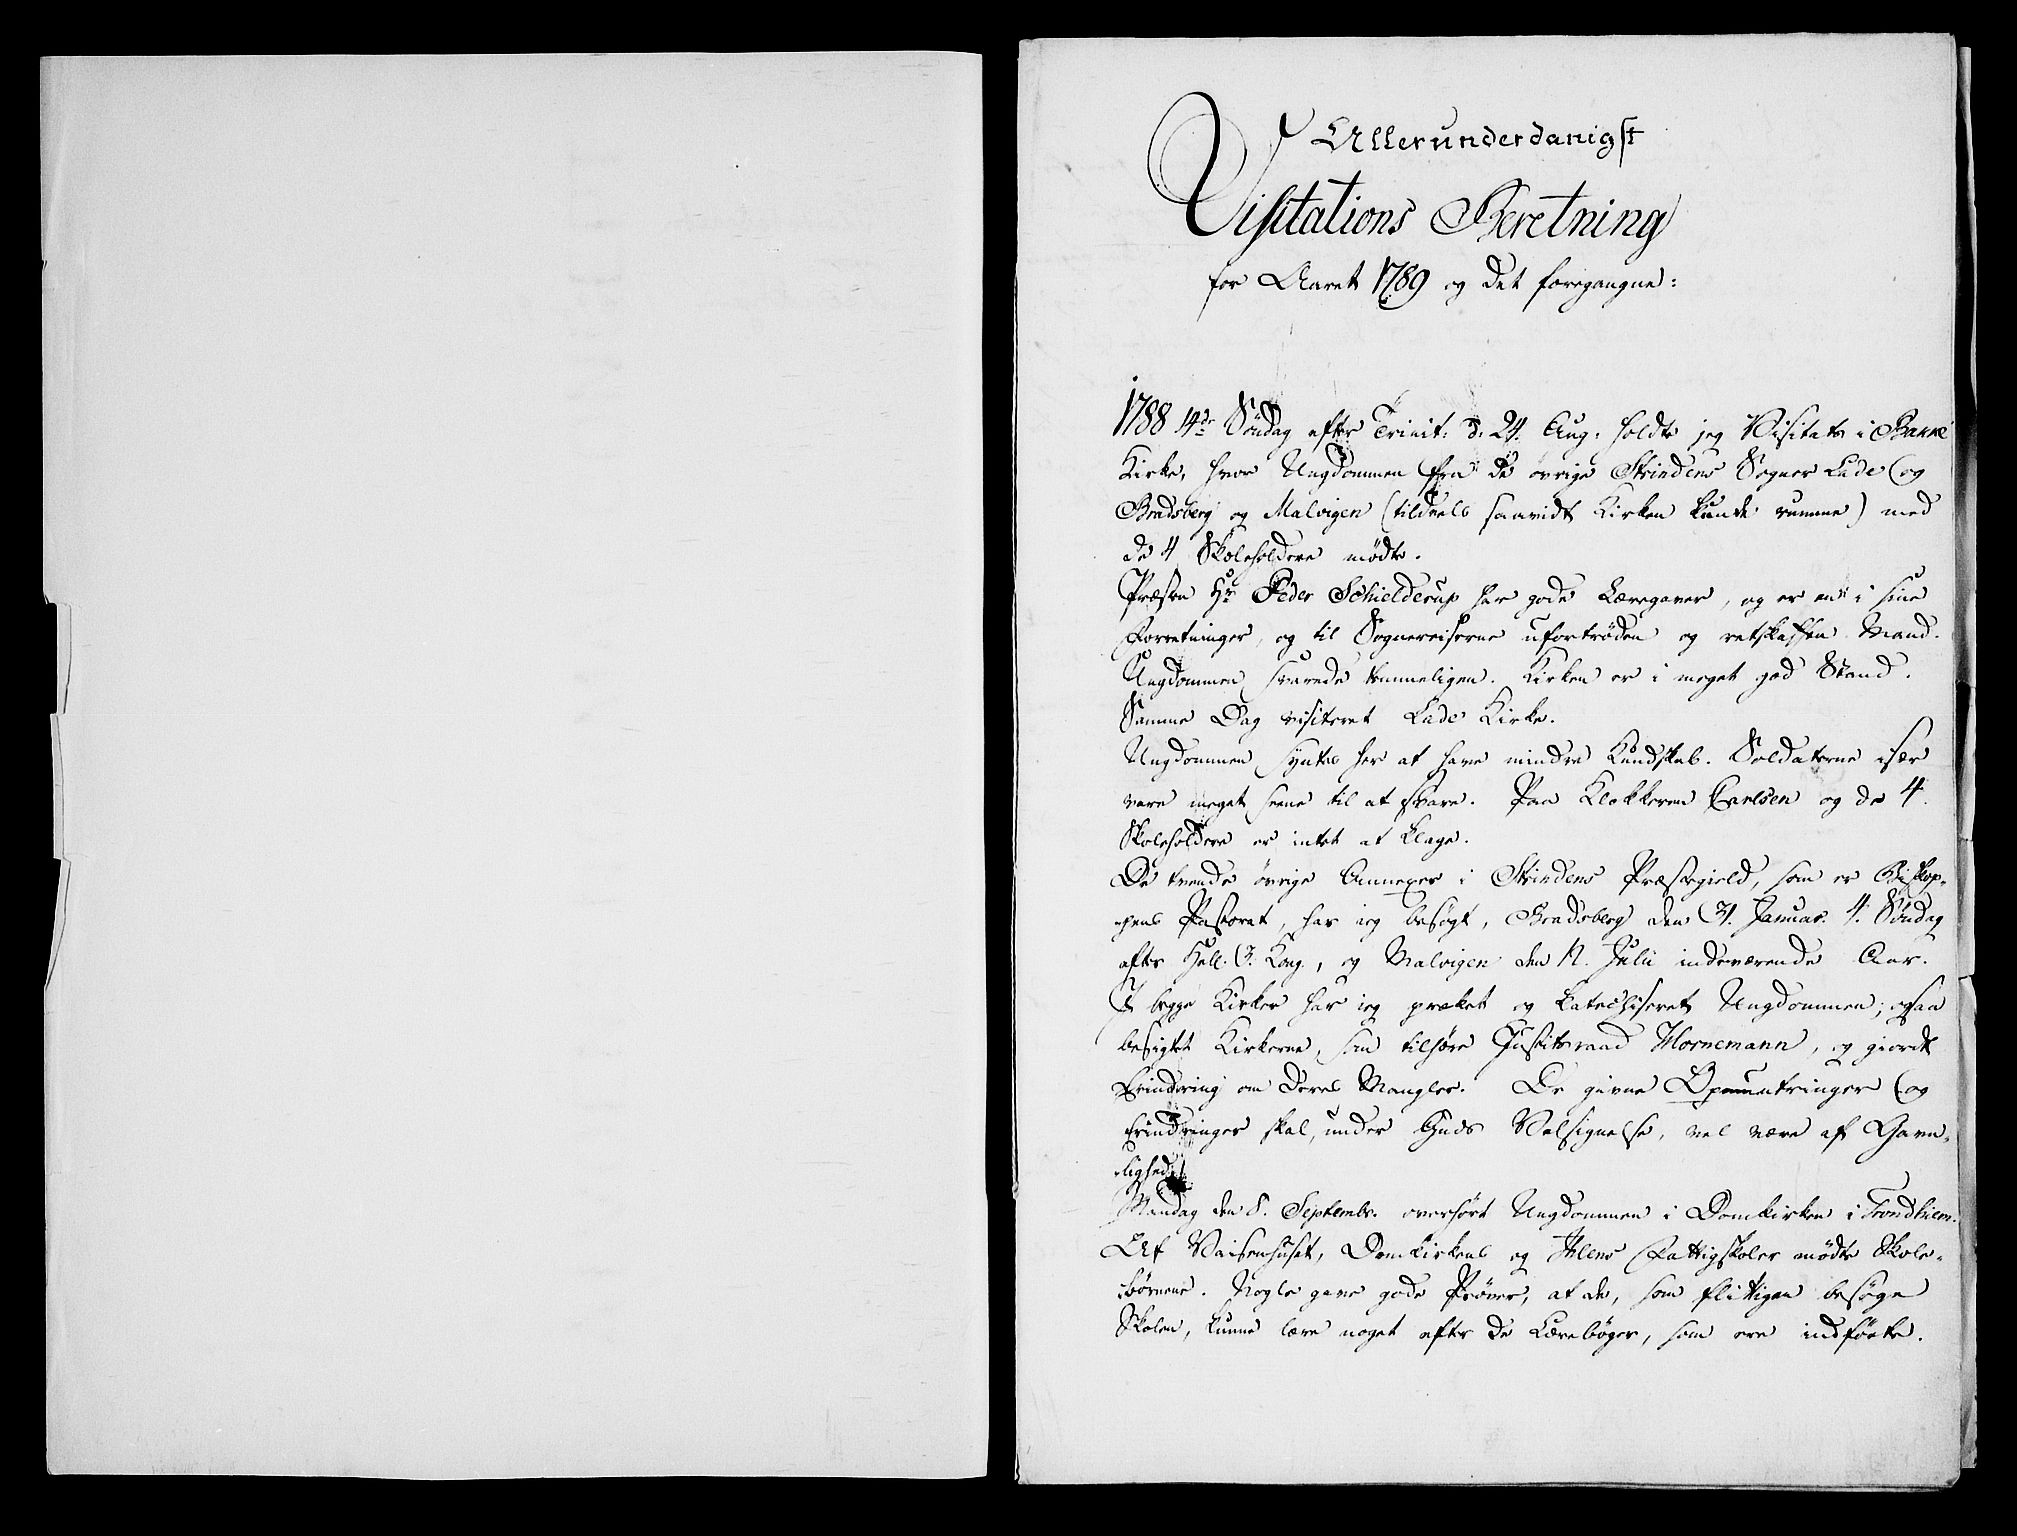 Allerunderdanigst
Visitations Beretning
for Aaret 1789 og det foregangne:
1788 14de Søndag efter Trinit: d: 24. Aug. holdte jeg Visitats i Bakke
Kirke, hvor Ungdommen fra de øvrige Strindens Sogner Lade og
Bradsberg og Malvigen (tildeels saavidt Kirken kunde rumme) med
de 4 Skoleholdere mødte.
Præsten Hr Peder Schielderup har gode Læregaver, og er en i sine
Forretninger, og til Sognereiserne ufortrøden og retskaffen Mand.
Ungdommen svarede temmeligen. Kirken er i meget god Stand.
Samme Dag visiteret Lade Kirke.
Ungdommen syntes her at have mindre Kundskab. Soldaterne især
vare meget seene til at svare. Paa Klokkeren Carlsen og de 4
Skoleholdere er intet at klage.
De tvende øvrige Annexer i Strindens Præstegield, som er Biskop-
pens Pastorat, har ieg besøgt, Bradsberg den 31. Januar. 4. Søndag
efter Hell. 3. Kong., og Malvigen den 12. Julii indeværende Aar.
I begge Kirker har ieg præket og katechiseret Ungdommen; ogsaa
besigtet Kirkerne, som tilhøre Justitsraad Hornemann, og giordt
Erindring om deres Mangler. De givne Opmuntringer og
Erindringer skal, under Guds Velsignelse, vel være af Gavn-
lighed.
Mandag den 8. Septembr. overhørt Ungdommen i Domkirken i Trondhiem.
Af Vaisenhuset, Domkirkens og Ihlens Fattigskoler mødte Skole-
børnene. Nogle gave gode Prøver, at de, som flittigen besøge
Skolen, kunne lære noget efter de Lærebøger, som ere indførte.